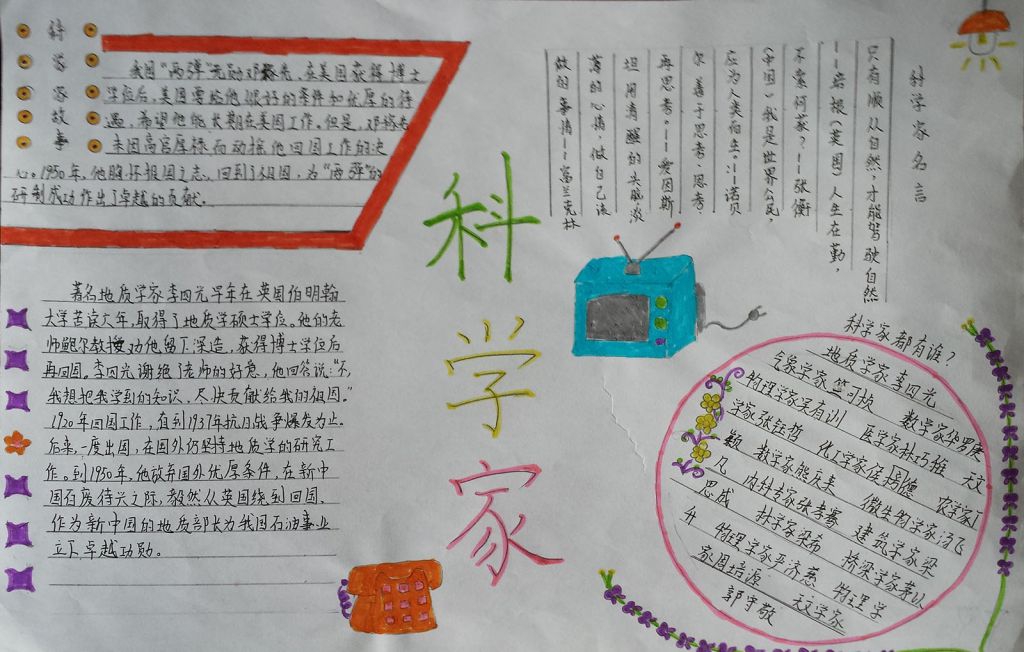 科学家故事
我国“两弹”元勋邓稼先,在美国获得博士
学位后,美国要给他很好的条件和优厚的待
遇,希望他能长期在美国工作。但是,邓稼先
未因高官厚禄而动摇他回国工作的决
心。1950年,他胸怀报国之志,回到了祖国,为“两弹”的
研制成功作出了卓越的贡献。
著名地质学家李四光早年在英国伯明翰
大学苦读六年,取得了地质学硕士学位。他的老
师鲍尔教授劝他留下深造,获得博士学位后
再回国。李四光谢绝了老师的好意,他回答说:“不,
我想把我学到的知识,尽快贡献给我的祖国。”
1920年回国工作,直到1937年抗日战争爆发为止。
后来,一度出国,在国外仍坚持地质学的研究工
作。到1950年,他放弃国外优厚条件,在新中
国百废待兴之际,毅然从英国绕到回国,
作为新中国的地质部长为我国石油事业
立下卓越功勋。
科学家
科学家名言
只有顺从自然,才能驾驶自然
——培根(英国)人生在勤,
不索何获?——张衡
(中国)我是世界公民,
应为人类而生。——诺贝
尔 善于思考,思考,
再思考。——爱因斯
坦 用清醒的头脑,淡
薄的心情,做自己该
做的事情——富兰克林
科学家都有谁?
地质学家李四光
气象学家竺可桢 数学家华罗庚
物理学家吴有训 医学家林巧稚 天文
学家张钰哲 化工学家侯德 农学家丁
颖 数学家熊庆来 微生物学家汤飞
凡 内科专家张孝骞 建筑学家梁
思成 林学家梁希 桥梁学家茅以
升 物理学家严济慈 物理学
家周培源 天文学家
郭守敬